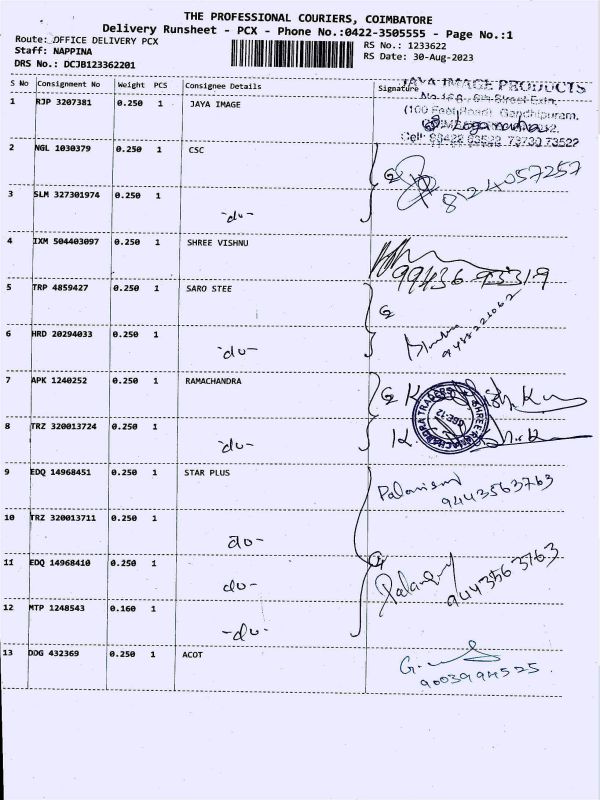 THE PROFESSIONAL COURIERS, COIMBATORE
Delivery Runsheet - PCX - Phone No.:0422-3505555 - Page No.:1
Route: OFFICE DELIVERY PCX
RS No.: 1233622
Staff: NAPPINA
RS Date: 30-Aug-2023
DRS No.: DCJB123362201
S No Consignment No Weight PCS Consignee Details Signature
JAYA IMAGE PRODUCTS
1 RJP 3207381 0.250 1 JAYA IMAGE
(100 Feet Road), Gandhipuram,
73730 73522
2 NGL 1030379 0.250 1 CSC
8124057257
3 SLM 327301974 0.250 1
-du-
4 IXM 504403097 0.250 1 SHREE VISHNU
99436 93319
5 TRP 4859427 0.250 1 SARO STEE
6 HRD 20294033 0.250 1
-du-
7 APK 1240252 0.250 1 RAMACHANDRA
SHREE RAMACHANDRA TRADERS
CBE-12
8 TRZ 320013724 0.250 1
-du-
9 EDQ 14968451 0.250 1 STAR PLUS
Palanisami
9443563763
10 TRZ 320013711 0.250 1
-du-
11 EDQ 14968410 0.250 1
-du-
9443563763
12 MTP 1248543 0.160 1
-du-
13 DDG 432369 0.250 1 ACOT
9003994525